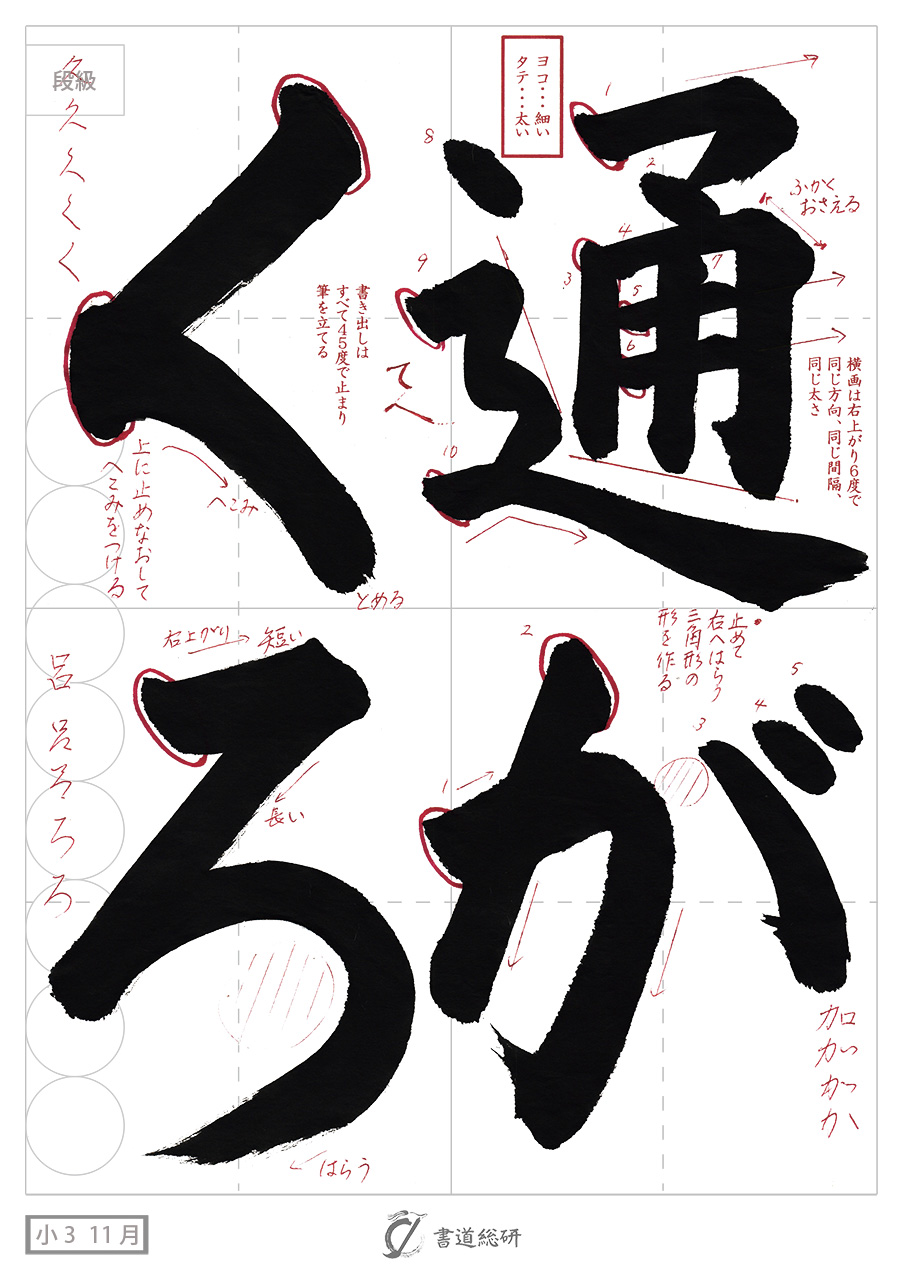 通
が
く
ろ
ヨコ・・・細い
タテ・・・太い
1
2
3
4
5
6
7
8
9
10
ふかく
おさえる
横画は右上がり6度で
同じ方向、同じ間隔、
同じ太さ
書き出しは
すべて45度で止まり
筆を立てる
てへ
段級
久
久
く
く
く
上に止めなおして
へこみをつける
へこみ
とめる
止めて
右へはらう
三角形の
形を作る
1
2
3
4
5
加
カい
かつ
か
右上がり
短い
長い
はらう
呂
呂
ろ
ろ
ろ
小3 11月
書道総研